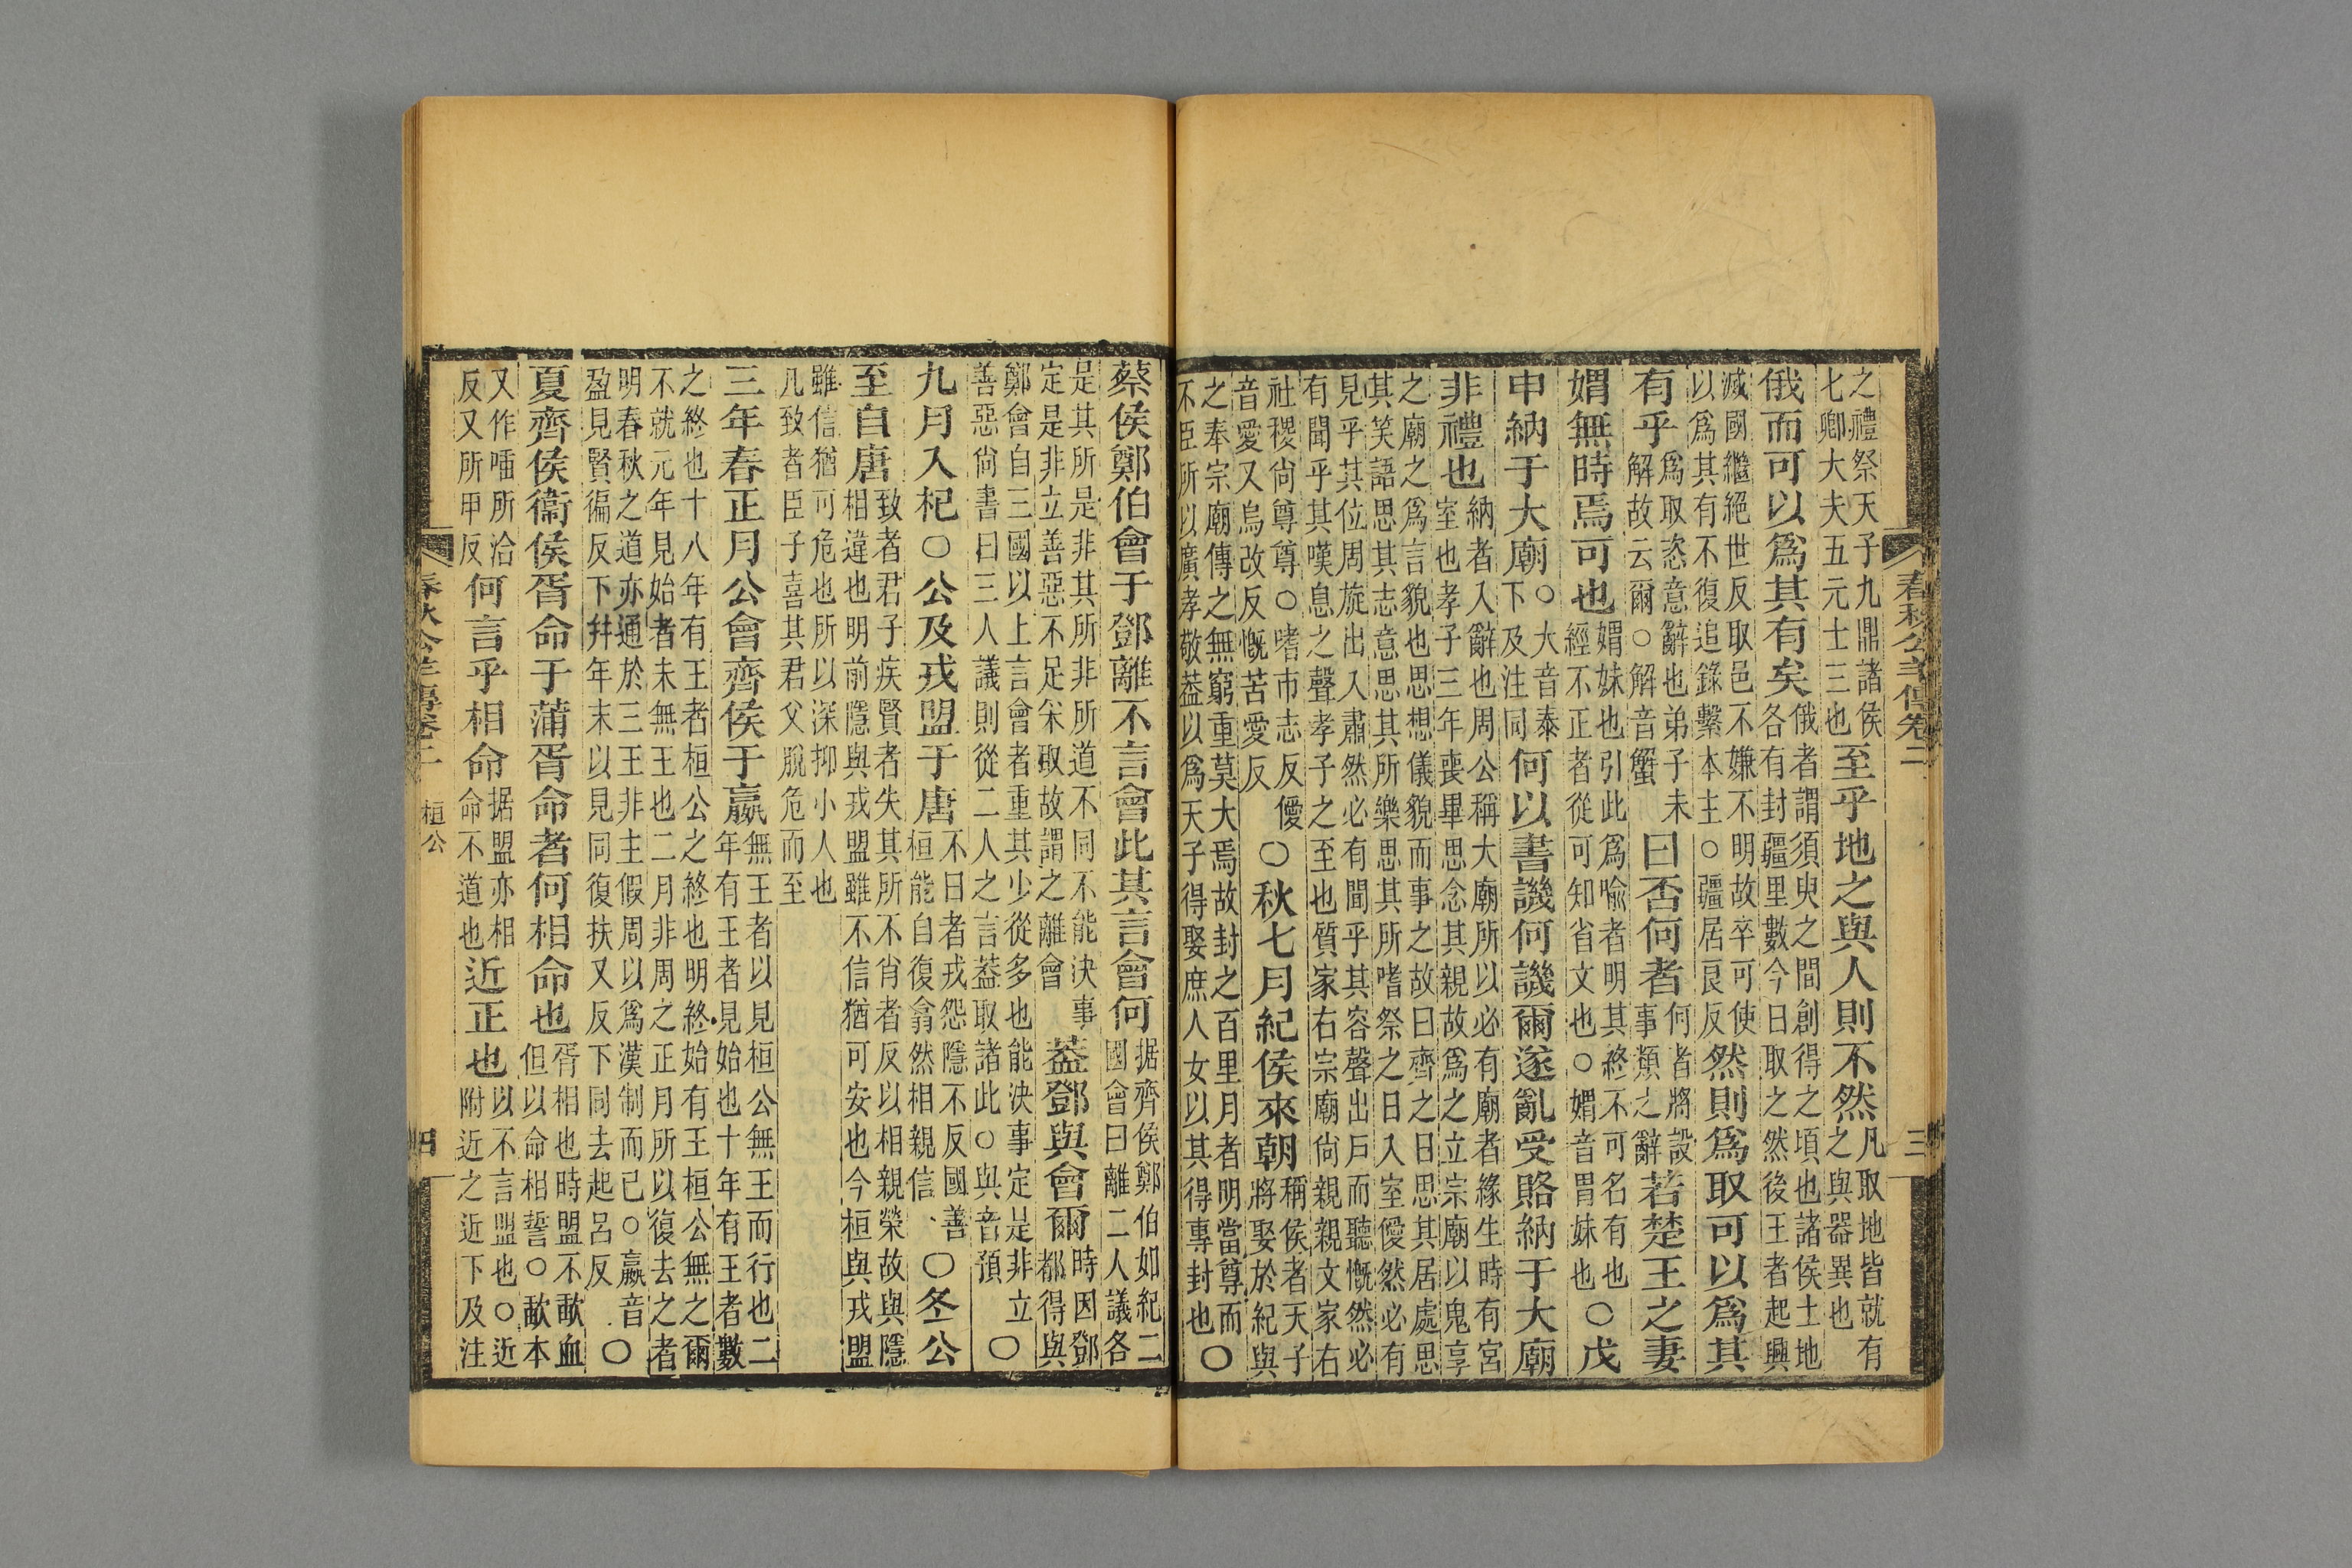 春秋公羊傳卷二
三
之禮祭天子九鼎諸侯七卿大夫五元士三也至乎地之與人則不然凡取地皆就有之與器異也
俄而可以爲其有矣俄者謂須臾之閒創得之頃也諸侯土地各有封疆里數今日取之然後王者起興
滅國繼絕世反取邑不嫌不明故卒可使以爲其有不復追錄繫本主○疆居良反然則爲取可以爲其
有乎爲取恣意辭也弟子未解故云爾○解音蟹曰否何者何者將設事類之辭若楚王之妻
媦無時焉可也媦妹也引此爲喻者明其終不可名有也經不正者從可知省文也○媦音胃妹也○戊
申納于大廟○大音泰下及注同何以書譏何譏爾遂亂受賂納于大廟
非禮也納者入辭也周公稱大廟所以必有廟者緣生時有宮室也孝子三年喪畢思念其親故爲之立宗廟以鬼享
之廟之爲言貌也思想儀貌而事之故曰齊之日思其居處思其笑語思其志意思其所樂思其所嗜祭之日入室僾然必有
見乎其位周旋出入肅然必有聞乎其容聲出戶而聽慨然必有聞乎其嘆息之聲孝子之至也質家右宗廟尚親親文家右
社稷尚尊尊○嗜市志反僾音愛又烏改反慨苦愛反○秋七月紀侯來朝稱侯者天子將娶於紀與
之奉宗廟傳之無窮重莫大焉故封之百里月者明當尊而不臣所以廣孝敬葢以爲天子得娶庶人女以其得專封也○
蔡侯鄭伯會于鄧離不言會此其言會何据齊侯鄭伯如紀二國會曰離二人議各
是其所是非其所非所道不同不能決事定是非立善惡不足采取故謂之離會葢鄧與會爾時因鄧都得與
鄭會自三國以上言會者重其少從多也能決事定是非立善惡尚書曰三人議則從二人之言葢取諸此○與音預○
九月入杞○公及戎盟于唐不日者戎怨隱不反國善桓能自復翕然相親信○冬公
至自唐致者君子疾賢者失其所不肖者反以相親榮故與隱相違也明前隱與戎盟雖不信猶可安也今桓與戎盟
雖信猶可危也所以深抑小人也凡致者臣子喜其君父脫危而至
三年春正月公會齊侯于嬴無王者以見桓公無王而行也二年有王者見始也十年有王者數
之終也十八年有王者桓公之終也明終始有王桓公無之爾不就元年見始者未無王也二月非周之正月所以復去之者
明春秋之道亦通於三王非主假周以爲漢制而已○嬴音盈見賢徧反下并年末以見同復扶又反下同去起呂反○
夏齊侯衞侯胥命于蒲胥命者何相命也胥相也時盟不歃血但以命相誓○歃本
又作唒所洽反又所甲反何言乎相命据盟亦相命不道也近正也以不言盟也○近附近之近下及注
春秋公羊傳卷二
桓公
四